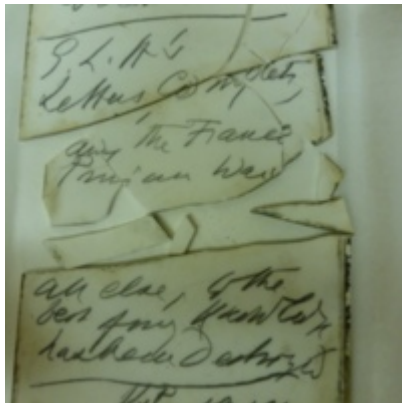 G. L. H's
Letters Complete,
and the Franco
Prussian War
all else, to the
best of my Knowledge
has been Destroyed